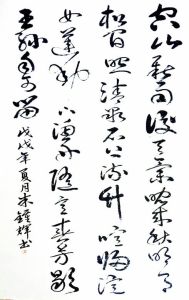 空山新雨後天氣晚來秋明月
松間照清泉石上流竹喧歸浣
女蓮動下漁舟隨意春芳歇
王孫自可留
戊戌年夏月朱輝書